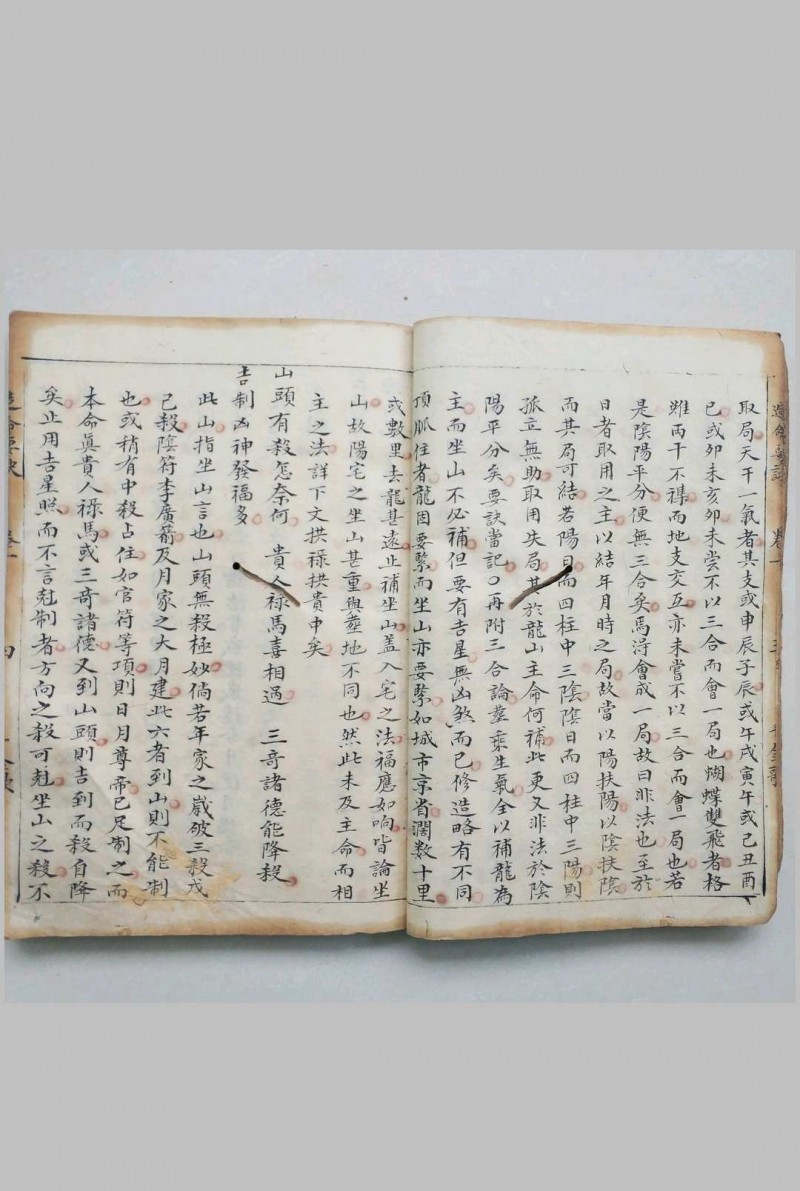 取局天干一氣者其支或申辰子辰或午戌寅午或己丑酉
已或夘未亥夘未嘗不以三合而會一局也蝴蝶雙飛者格
雖丙干不襍而地支交互亦未嘗不以三合而會一局也若
是陰陽平分便無三合矣焉淂會成一局故曰非法也至於
日者取用之主以結年月時之局故當以陽扶陽以陰扶陰
而其局可結若陽日而四柱中三陰陰日而四柱中三陽則
孤立無助取用失局其於龍山主命何補此更又非法於陰
陽平分矣要訣當記○再附三合論塟乘生氣全以補龍為
主而坐山不必補但要有吉星無凶煞而已修造略有不同
頂脈住者龍固要緊而坐山亦要緊如城市京省濶数十里
或數里去龍甚遠止補坐山盖入宅之法福應如响皆論坐
山故陽宅之坐山甚重與塟地不同也然此未及主命而相
主之法詳下文拱禄拱貴中矣
山頭有殺怎奈何 貴人禄馬喜相遇 三奇諸德能降殺
吉制凶神發福多
此山指坐山言也山頭無殺極妙倘若年家之歲破三殺戊
己殺陰符李廣箭及月家之大月建此六者到山則不能制
也或稍有中殺占住如官符等項則日月尊帝已足制之而
本命眞貴人禄馬或三奇諸德又到山頭則吉到而殺自降
矣止用吉星照而不言尅制者方向之殺可尅坐山之殺不